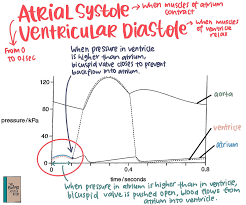 Atrial Systole → When muscles of atrium contract
Ventricular Diastole → When muscles of ventricle relax
From 0 to 0.1 sec
When pressure in ventricle
is higher than atrium,
bicuspid valve closes to prevent
backflow into atrium.
120
80
pressure/kPa
40
0
0
0.2
0.4
0.6
0.8
time/seconds
aorta
ventricle
atrium
When pressure in atrium is higher than in ventricle,
bicuspid valve is pushed open, blood flows from
atrium into ventricle.